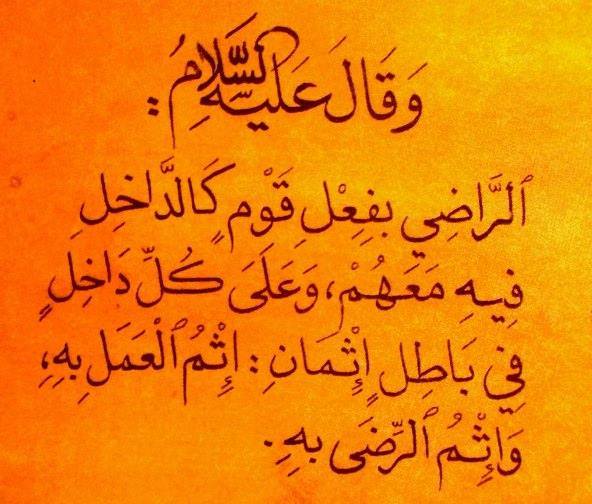 وَقَالَ عَلَيْهِ السَّلَامُ :
ٱلرَّاضِي بِفِعْلِ قَوْمٍ كَالدَّاخِلِ
فِيهِ مَعَهُمْ، وَعَلَىَ كُلِّ دَاخِلٍ
فِي بَاطِلٍ إِثْمَانِ : إِثْمُ ٱلْعَمَلِ بِهِ،
وَإِثْمُ ٱلرِّضَى بِهِ.